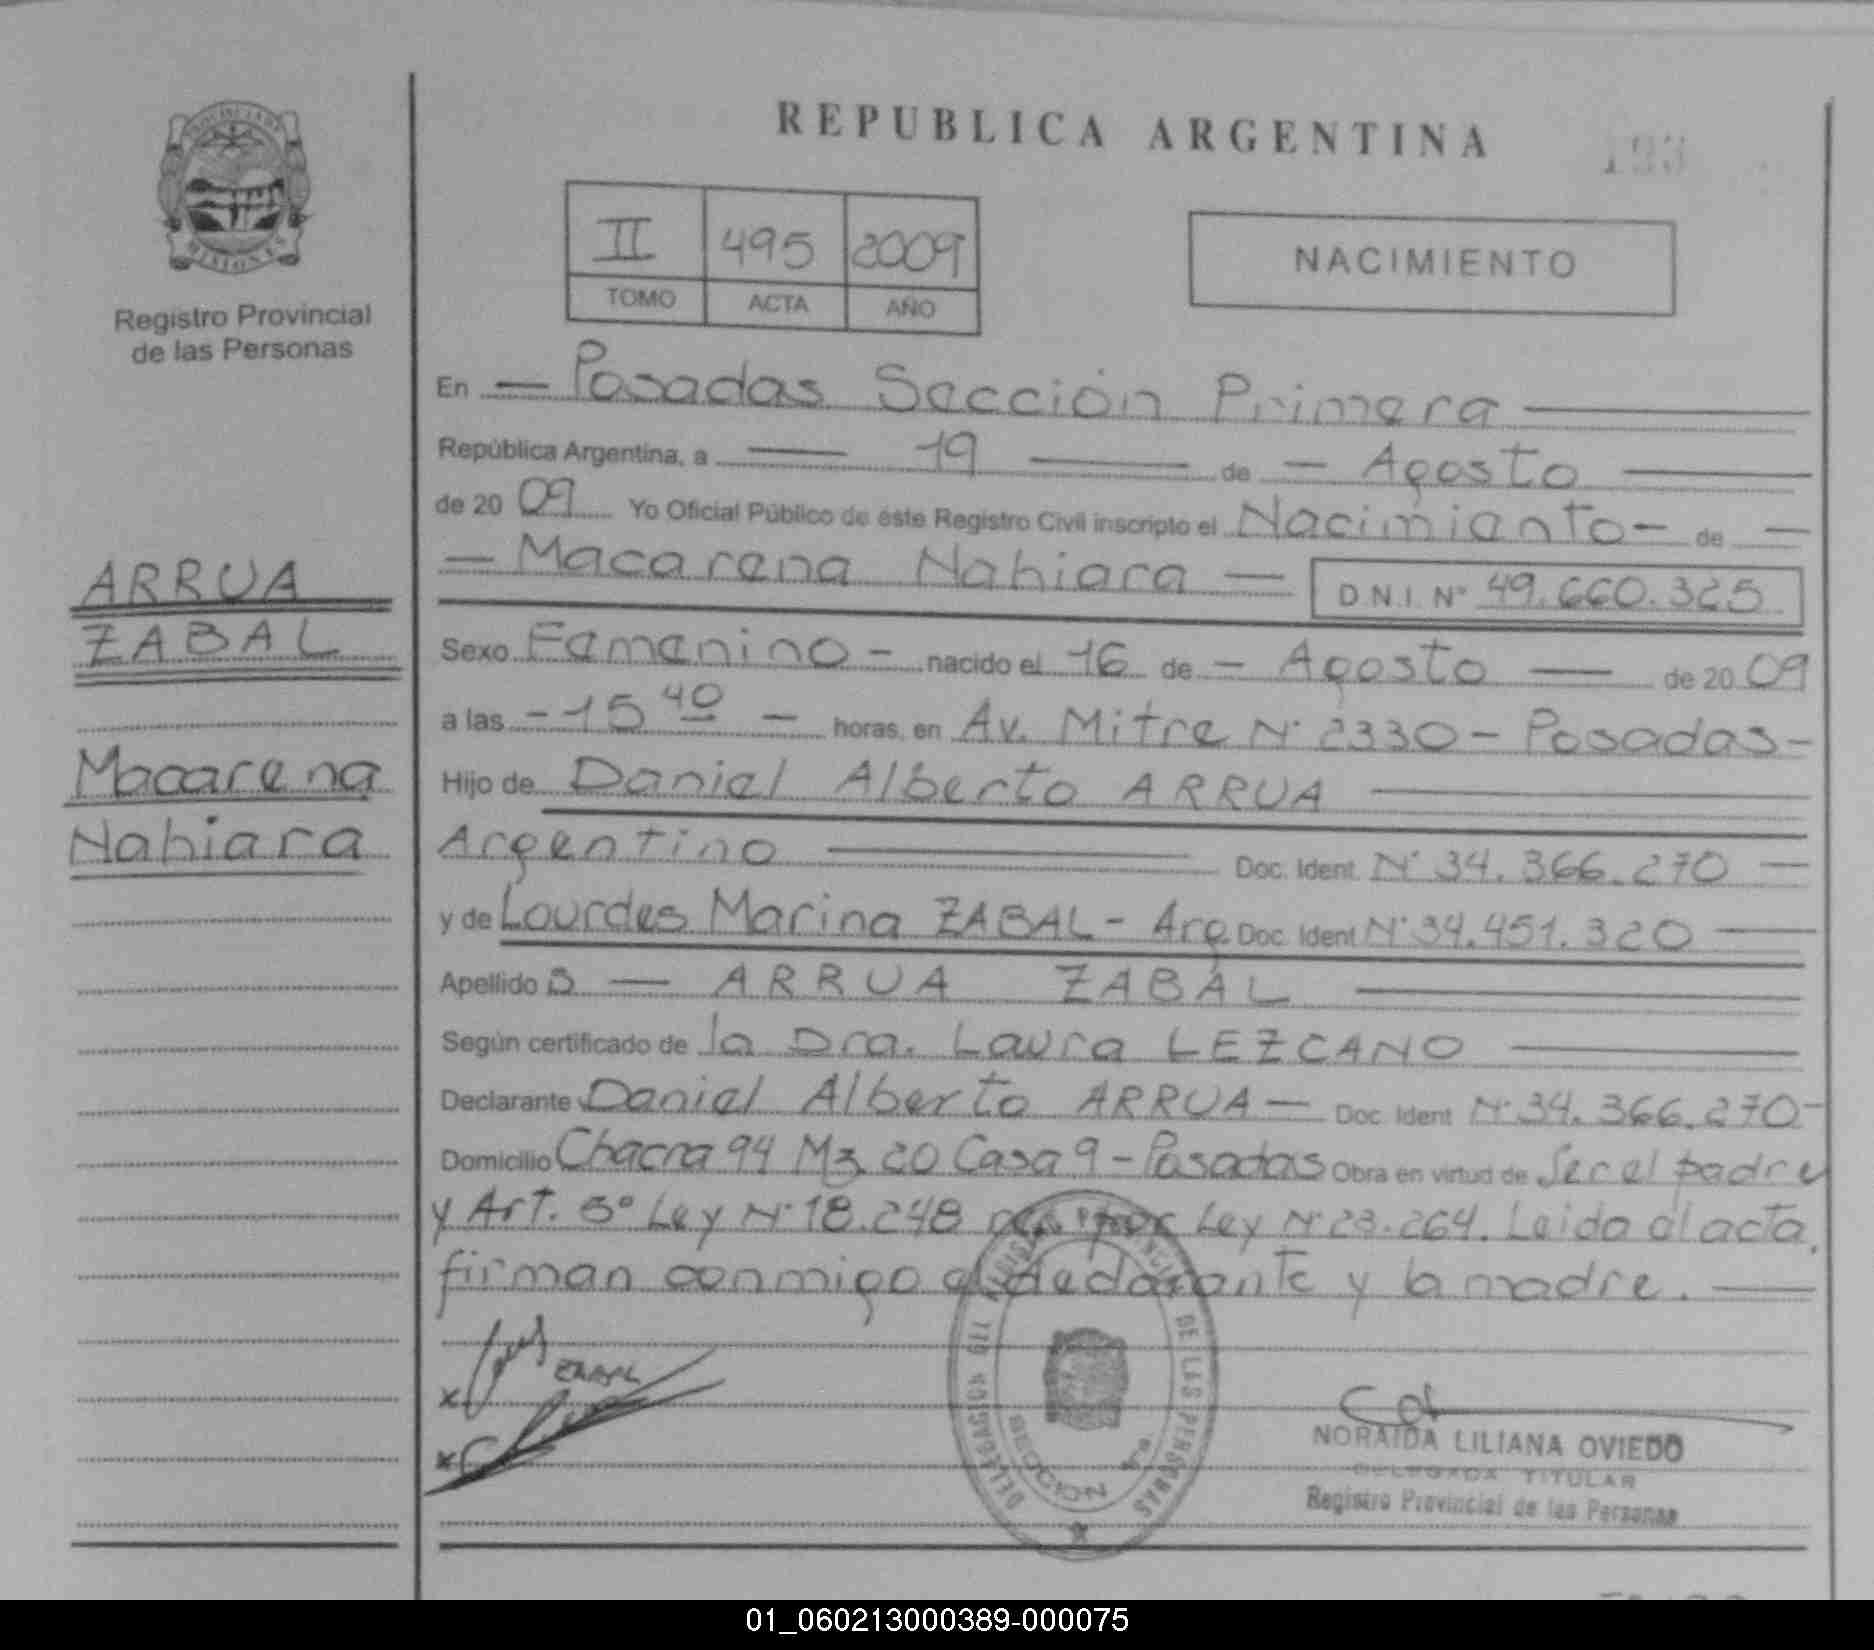 REPUBLICA ARGENTINA
193
PROVINCIA DE
MISIONES
Registro Provincial
de las Personas
II 495 2009
TOMO ACTA AÑO
NACIMIENTO
ARRUA
ZABAL
Macarena
Nahiara
En Posadas Sección Primera
República Argentina, a 19 de Agosto
de 2009 Yo Oficial Público de éste Registro Civil inscripto el Nacimiento de
Macarena Nahiara D.N.I. Nº 49.660.325
Sexo Femenino - nacido el 16 de - Agosto de 2009
a las - 15 40 - horas, en Av. Mitre Nº 2330 - Posadas -
Hijo de Daniel Alberto ARRUA
Argentino Doc. Ident. Nº 34.366.270
y de Lourdes Marina ZABAL - Arg. Doc. Ident Nº 34.451.320
Apellido S ARRUA ZABAL
Según certificado de la Dra. Laura LEZCANO
Declarante Daniel Alberto ARRUA Doc. Ident Nº 34.366.270 -
Domicilio Chacra 94 Mz 20 Casa 9 - Posadas Obra en virtud de Ser el padre
y Art. 5º Ley Nº 18.248 por Ley Nº 23.264. Leida el acta,
firman conmigo el declarante y la madre.
ZABAL
DELEGACION REGISTRO PROVINCIAL DE LAS PERSONAS
SECCION 1ra.
NORAIDA LILIANA OVIEDO
DELEGADA TITULAR
Registro Provincial de las Personas
01_060213000389-000075